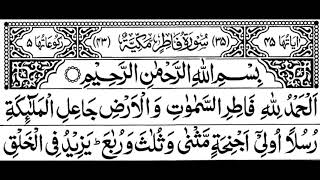 اٰيَاتُهَا ۴۵ (۳۵) سُوْرَةُ فَاطِرٍ مَكِّيَّةٌ (۴۳) رُكُوْعَاتُهَا ۵
بِسْمِ اللهِ الرَّحْمٰنِ الرَّحِيْمِ ○
اَلْحَمْدُ لِلّٰهِ فَاطِرِ السَّمٰوٰتِ وَالْاَرْضِ جَاعِلِ الْمَلٰٓئِكَةِ
رُسُلًا اُولِيْٓ اَجْنِحَةٍ مَّثْنٰى وَثُلٰثَ وَرُبٰعَ ؕ يَزِيْدُ فِي الْخَلْقِ